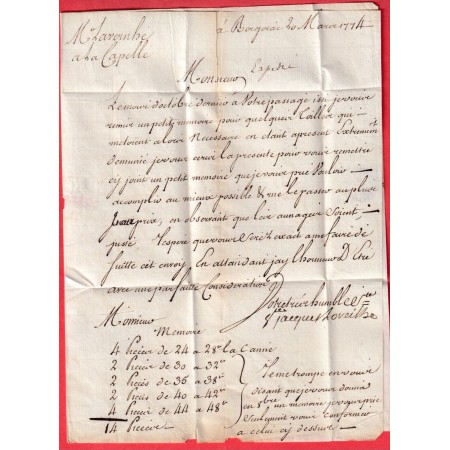 à Bergerac 20 Mars 1774
Mr Laveinhe
a La Capelle
Monsieur
Le mois d'octobre dernier à Votre passage isi je vous
remis un petit memoire pour quelques
m'etoient alors Necessaire en etant apresent Extremem.t
demunie je vous ecris la presente pour vous remettre
cy joint un petit memoire que je vous prie Vouloir
accomplir au mieux possible & me le passer au plus
juste prix, en observant que les aunages soient
juste J'espere que vous serés exact a me faire de
suitte cet envoy. En attandant jay l'honneur D'Etre
avec une parfaite Consideration
Monsieur
Votre tres humble
Jacques
Memoire
4 Pieces de 24 a 28 la Canne
2 Pieces de 30 a 32
2 Pieces de 36 a 38
2 Pieces de 40 a 42
4 Pieces de 44 a 48
14 Pieces
Je me trompe en vous
disant que je vous donnai
en 8bre un memoire je vous prie
seulement vous conformer
a celui cy dessus